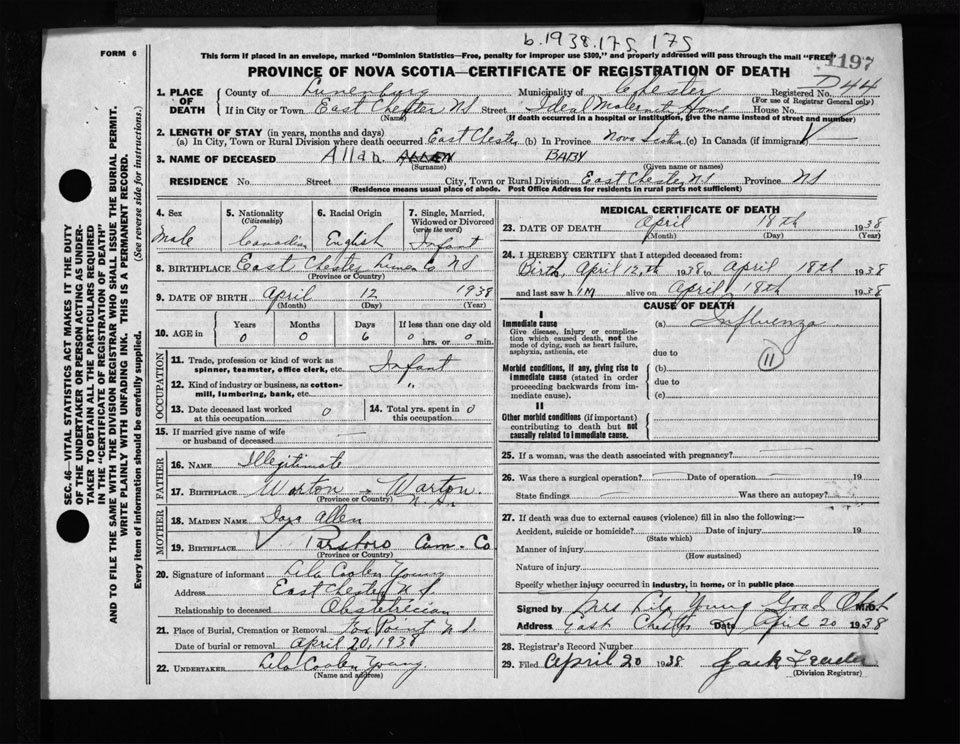 b.1938.175 175
FORM 6
This form if placed in an envelope, marked "Dominion Statistics—Free, penalty for improper use $300," and properly addressed will pass through the mail "FREE"
1197
PROVINCE OF NOVA SCOTIA—CERTIFICATE OF REGISTRATION OF DEATH
D44
SEC. 46—VITAL STATISTICS ACT MAKES IT THE DUTY
OF THE UNDERTAKER OR PERSON ACTING AS UNDER-
TAKER TO OBTAIN ALL THE PARTICULARS REQUIRED
IN THE "CERTIFICATE OF REGISTRATION OF DEATH"
AND TO FILE THE SAME WITH THE DIVISION REGISTRAR WHO SHALL ISSUE THE BURIAL PERMIT.
WRITE PLAINLY WITH UNFADING INK. THIS IS A PERMANENT RECORD.
Every item of information should be carefully supplied. (See reverse side for instructions.)
1. PLACE OF DEATH County of Lunenburg Municipality of Chester Registered No.
(For use of Registrar General only)
If in City or Town East Chester NS Street Ideal Maternity Home House No.
(Name) (If death occurred in a hospital or institution, give the name instead of street and number)
2. LENGTH OF STAY (in years, months and days)
(a) In City, Town or Rural Division where death occurred East Chester (b) In Province Nova Scotia (c) In Canada (if immigrant)
3. NAME OF DECEASED Allan ALLEN BABY
(Surname) (Given name or names)
RESIDENCE No. Street City, Town or Rural Division East Chester, NS Province NS
(Residence means usual place of abode. Post Office Address for residents in rural parts not sufficient)
4. Sex
Male
5. Nationality
(Citizenship)
Canadian
6. Racial Origin
English
7. Single, Married,
Widowed or Divorced
(write the word)
Infant
8. BIRTHPLACE East Chester Lunen Co NS
(Province or Country)
9. DATE OF BIRTH April 12 1938
(Month) (Day) (Year)
10. AGE in
Years Months Days If less than one day old
0 0 6 0 hrs. or 0 min.
OCCUPATION
11. Trade, profession or kind of work as
spinner, teamster, office clerk, etc. Infant
12. Kind of industry or business, as cotton-
mill, lumbering, bank, etc. "
13. Date deceased last worked
at this occupation 0
14. Total yrs. spent in
this occupation 0
15. If married give name of wife
or husband of deceased —
FATHER
16. NAME Illegitimate
17. BIRTHPLACE Warton - Warton
(Province or Country)
MOTHER
18. MAIDEN NAME Allen
19. BIRTHPLACE Parsboro Cum-Co
(Province or Country)
20. Signature of informant Lila Coolen Young
Address East Chester N.S.
Relationship to deceased Obstetrician
21. Place of Burial, Cremation or Removal Fox Point N.S.
Date of burial or removal April 20, 1938
22. UNDERTAKER Lila Coolen Young
(Name and address)
MEDICAL CERTIFICATE OF DEATH
23. DATE OF DEATH April 18th 1938
(Month) (Day) (Year)
24. I HEREBY CERTIFY that I attended deceased from:
Birth, April 12,th 1938 to April 18th 1938
and last saw h IM alive on April 18th 1938
CAUSE OF DEATH
I
Immediate cause
Give disease, injury or complica-
tion which caused death, not the
mode of dying, such as heart failure,
asphyxia, asthenia, etc
(a) Influenza
due to
11
Morbid conditions, if any, giving rise to
immediate cause (stated in order
proceeding backwards from im-
mediate cause).
(b)
due to
(c)
II
Other morbid conditions (if important)
contributing to death but not
causally related to immediate cause.
25. If a woman, was the death associated with pregnancy? —
26. Was there a surgical operation? — Date of operation — 19
State findings — Was there an autopsy? —
27. If death was due to external causes (violence) fill in also the following:—
Accident, suicide or homicide? Date of injury 19
(State which)
Manner of injury
(How sustained)
Nature of injury
Specify whether injury occurred in industry, in home, or in public place
Signed by Mrs Lila Young Grad Obst M.D.
Address East Chester Date April 20 1938
28. Registrar's Record Number
29. Filed April 20 1938 Jack
(Division Registrar)